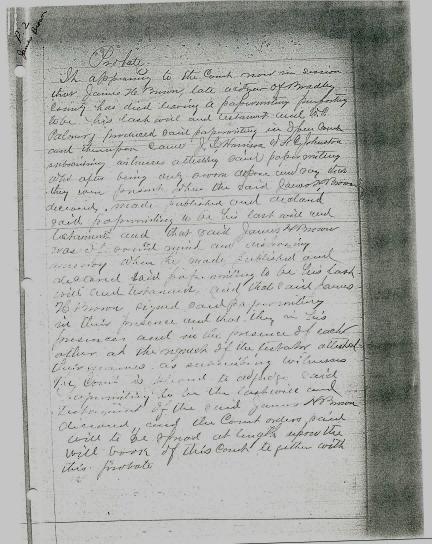 P. 2
James Brown
Probate
It appearing to the Court now in session
that James H. Brown late a citizen of Bradley
County has died leaving a paperwriting purporting
to be his last will and testament and
produced said paperwriting in Open Court
and thereupon came J. Harrison & Johnston
subscribing witnesses attesting said paperwriting
who after being duly sworn depose and say that
they were present when the said James H Brown
deceased, made published and declared
said paperwriting to be his last will and
testament and that said James H Brown
was of sound mind and disposing
memory when he made published and
declared said paperwriting to be his last
will and testament, and that said James
H Brown signed said paperwriting
in their presence and that they in his
presence and in the presence of each
other at the request of the testator attested
their names as subscribing witnesses
The Court is pleased to adjudge said
paperwriting to be the last will and
testament of the said James H Brown
deceased, and the Court orders said
will to be spread at length upon the
will book of this Court together with
this probate